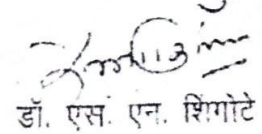 डॉ. एस. एन. शिंगोटे